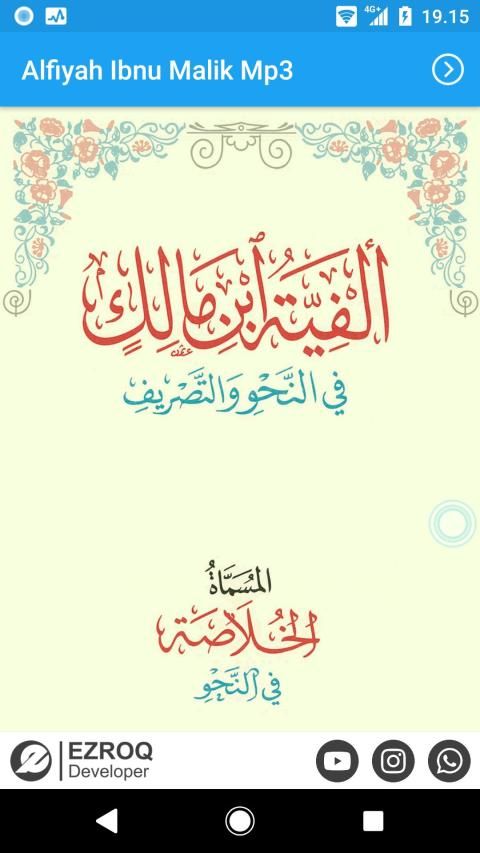 4G+ 19.15
Alfiyah Ibnu Malik Mp3
أَلْفِيَّةُ ابْنِ مَالِكٍ
فِي النَّحْوِ وَالتَّصْرِيفِ
المُسَمَّاةُ
الخُلَاصَة
فِي النَّحْوِ
EZROQ
Developer